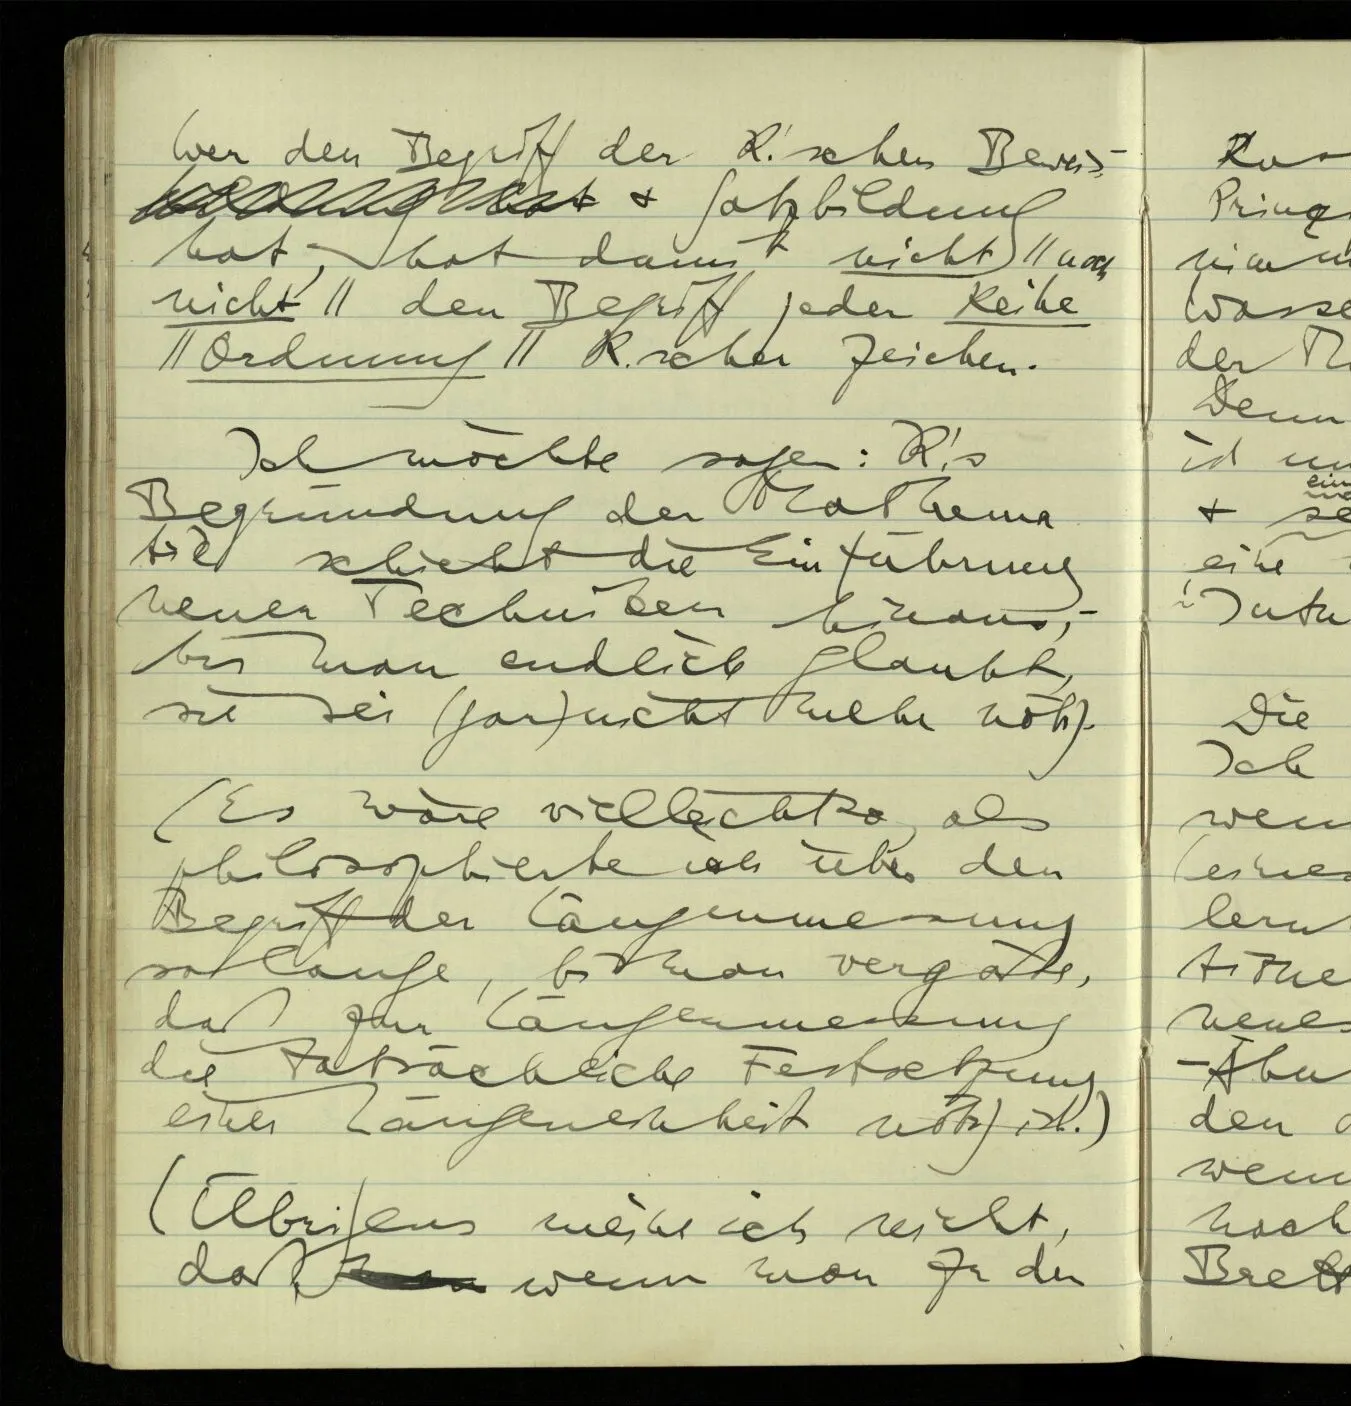 Wer den Begriff der R.'schen Beweis-
& Satzbildung
hat, hat damit nicht // noch
nicht // den Begriff jeder Reihe
// Ordnung // R.scher Zeichen.
Ich möchte sagen: R.'s
Begründung der Mathema
tik schiebt die Einführung
neuer Techniken hinaus, –
bis man endlich glaubt,
sie sei (gar) nicht mehr nötig.
(Es wäre vielleicht so, als
philosophierte ich über den
Begriff der Längenmessung
so lange, bis man vergäße,
daß zur Längenmessung
die tatsächliche Festsetzung
einer Längeneinheit nötig ist.)
(Übrigens meine ich nicht,
daß, wenn man zu der
Prinz
Wasse
der
Denn
&
eine
Die
Ich
wenn
(eines
neues
den
wenn
noch
Brett